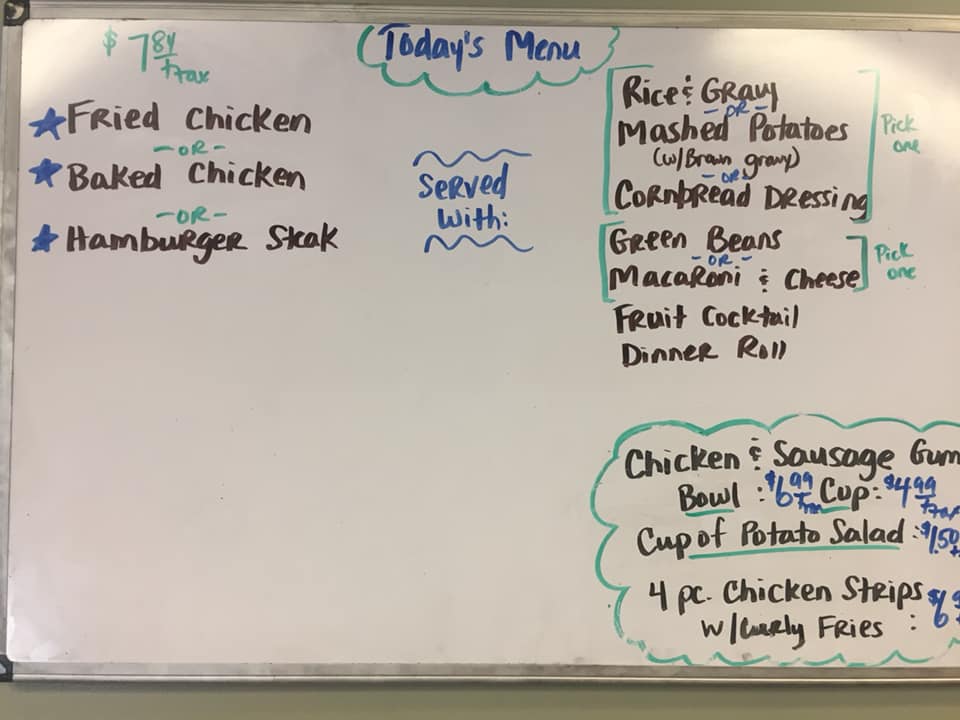 $7.84
+tax
Today's Menu
★ Fried Chicken
-OR-
★ Baked Chicken
-OR-
★ Hamburger Steak
Served
With:
Rice & Gravy
-OR-
Mashed Potatoes
(w/Brown gravy)
-OR-
Cornbread Dressing
Pick
one
Green Beans
-OR-
Macaroni & Cheese
Pick
one
Fruit Cocktail
Dinner Roll
Chicken & Sausage Gum
Bowl: $6.99 +tax Cup: $4.99 +tax
Cup of Potato Salad: $1.50
4 pc. Chicken Strips
w/Curly Fries :